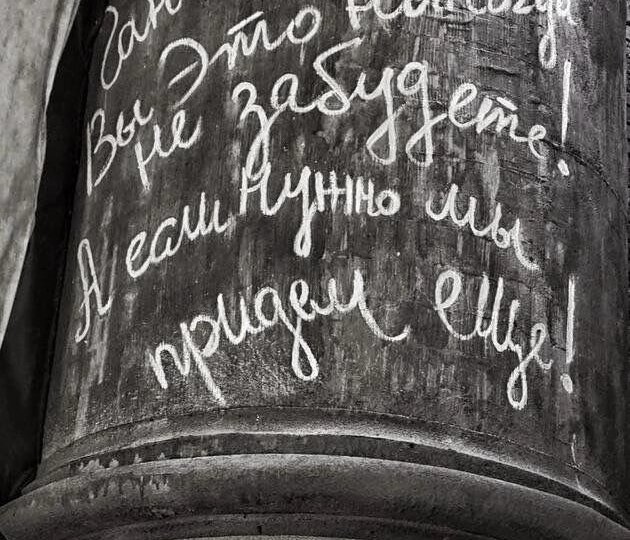 Вы Это никогда
не забудете!
А если нужно мы
придем еще!